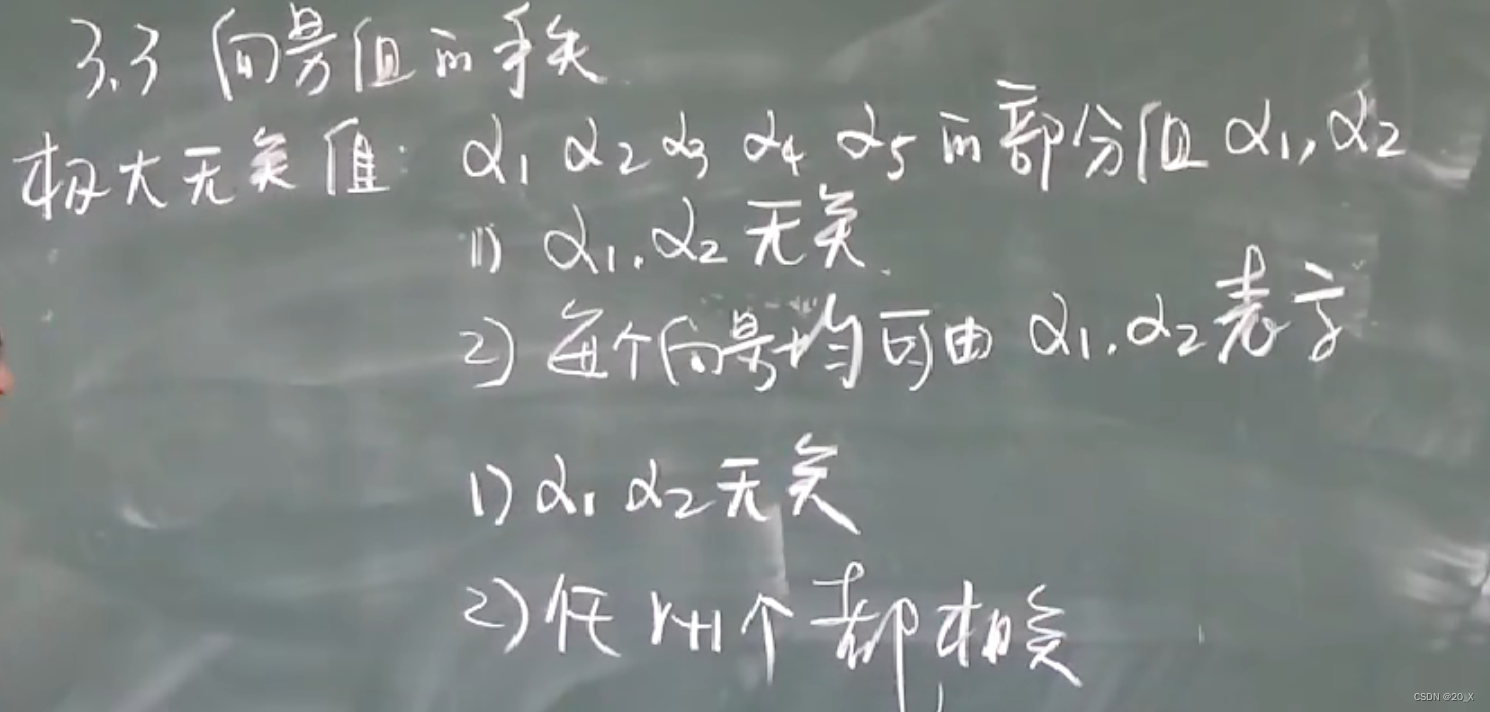 3.3 向量组的秩
极大无关组: α₁ α₂ α₃ α₄ α₅ 的部分组 α₁, α₂
1) α₁. α₂ 无关.
2) 每个向量均可由 α₁. α₂ 表示
1) α₁ α₂ 无关
2) 任 r+1 个都相关
CSDN @20_X